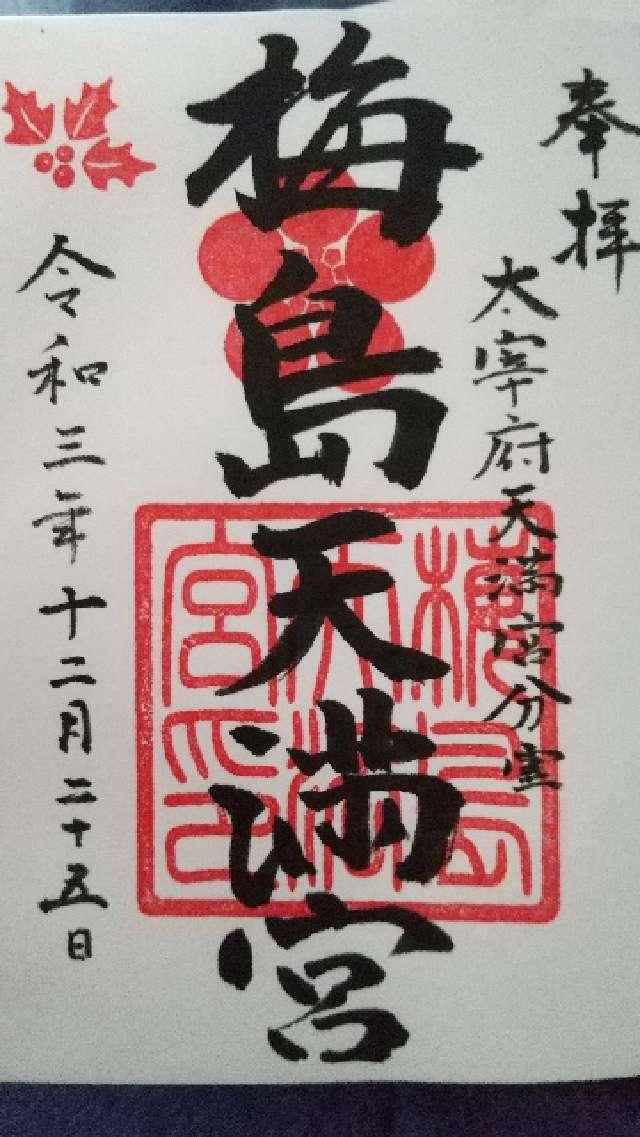 奉拝
太宰府天満宮分霊
梅島天満宮
梅島
天満
宮印
令和三年十二月二十五日